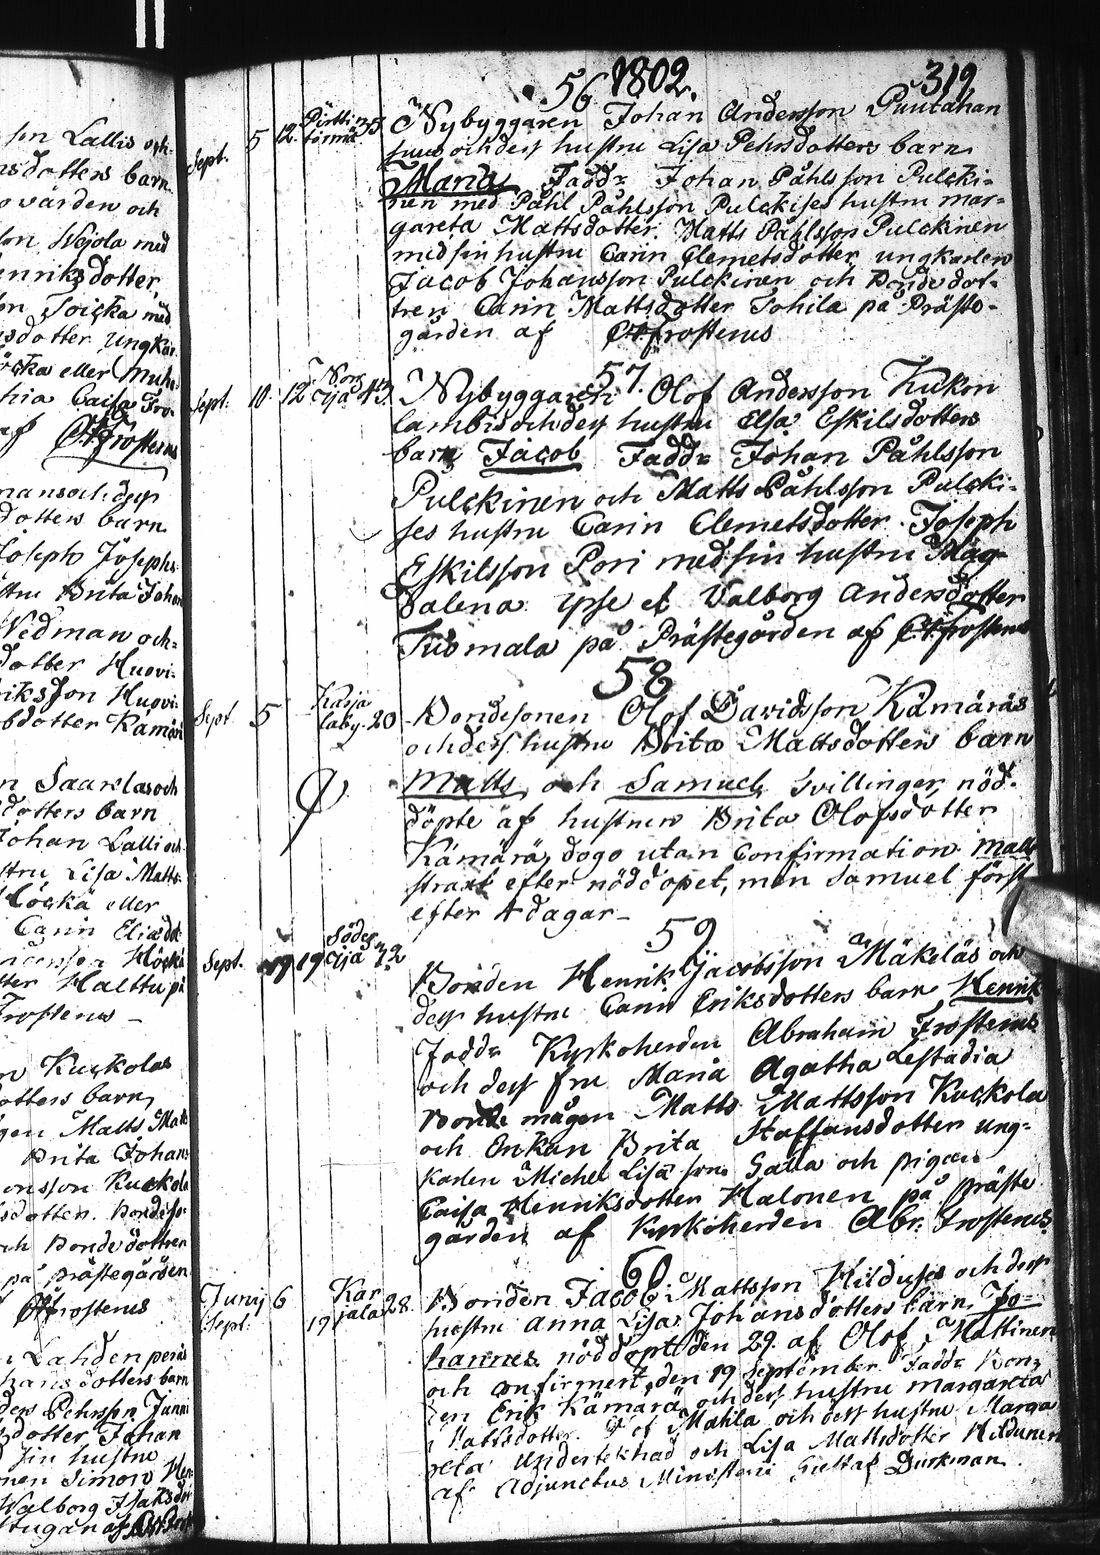 sin Lallis och
sdotters barn
värden och
son Wejola med
enriksdotter
on Toicka med
sdotter ungkar
af
dotters barn
Joseph Josephs
stru Brita Johan
Wedman och
dotter Huovi
riksson Huovi
dotter Kamärä
n Saarelas och
dotters barn
Johan Lalli och
stru Lisa Matts
Höckä eller
Carin Elia dot
Halttu på
Frosterus
Kuckolas
otters barn
gen Matts Matt
Brita Johans
onsson Kuckola
sdotter Bondeso
och Bondedottren
på prästegården
Frosterus
Lahdenperäs
hans dotters barn
ders Pehrsson Junni
dotter Johan
sin hustru
nen Simon Hen
Walborg Isaksdot
stugan af
1802. 319
56
Sept. 5 12 35 Nybyggaren Johan Andersson Puutahan
suus och dess hustru Lisa Pehrsdotters barn
Maria Fadd: Johan Påhlsson Pulcki=
nen med Påhl Påhlsson Pulckises hustru mar=
gareta Mattsdotter Matts Påhlsson Pulckinen
med sin hustru Carin Clemetsdotter ungkarlen
Jacob Johansson Pulckinen och Bondedot=
tren Carin Mattsdotter Sohila på Präste=
gården af Frosterus
57
Sept. 10 12 Norr
sijd 43 Nybyggaren Olof Andersson Kukon
lambis och dess hustru Elsa Eskilsdotters
barn Jacob Fadd: Johan Påhlsson
Pulckinen och Matts Påhlsson Pulcki=
ses hustru Carin Clemetsdotter. Joseph
Eskilsson Pori med sin hustru Mag=
dalena ipse et Valborg Andersdotter
Tuomala på Prästegården af Frosterus
58
Sept. 5 Karja
laby 20 Bondesonen Olof Davidsson Kämäräs
och dess hustru Brita Mattsdotters barn
Matts och Samuel tvillingar nöd=
döpte af hustrun Brita Olofsdotter
Kämärä, dogo utan Confirmation Matts
straxt efter nöddopet, men Samuel först
efter 4 dagar
59
Sept. 19 19 Söder
sijd 32 Bonden Henrik Jacobsson Mäkeläs och
dess hustru Carin Eriksdotters barn Henrik
Fadd: Kyrkoherden Abraham Frosterus
och dess fru Maria Agatha Lestadia
Bonde mågen Matts Mattsson Kuckola
och Enkan Brita Staffansdotter ung=
karlen Michel Lisa son Salla och pigan
Caisa Henriksdotter Halonen på präste
gården af Kyrkoherden Abr: Frosterus
60
Junij 6
Sept. 19 Kar
jala 28. Bonden Jacob Mattsson Hilduses och dess
hustru Anna Lisa Johansdotters barn Jo=
hannes nöddöpt den 29. af Olof Mattinen
och confirmert den 19 September Fadd: Bon=
den Erik Kämärä och dess hustru Margareta
Mattsdotter Makla och dess hustru Marga
reta undertecknad och Lisa Mattsdotter Hildunen
af Adjunctus Ministerii Gustaf Durkman